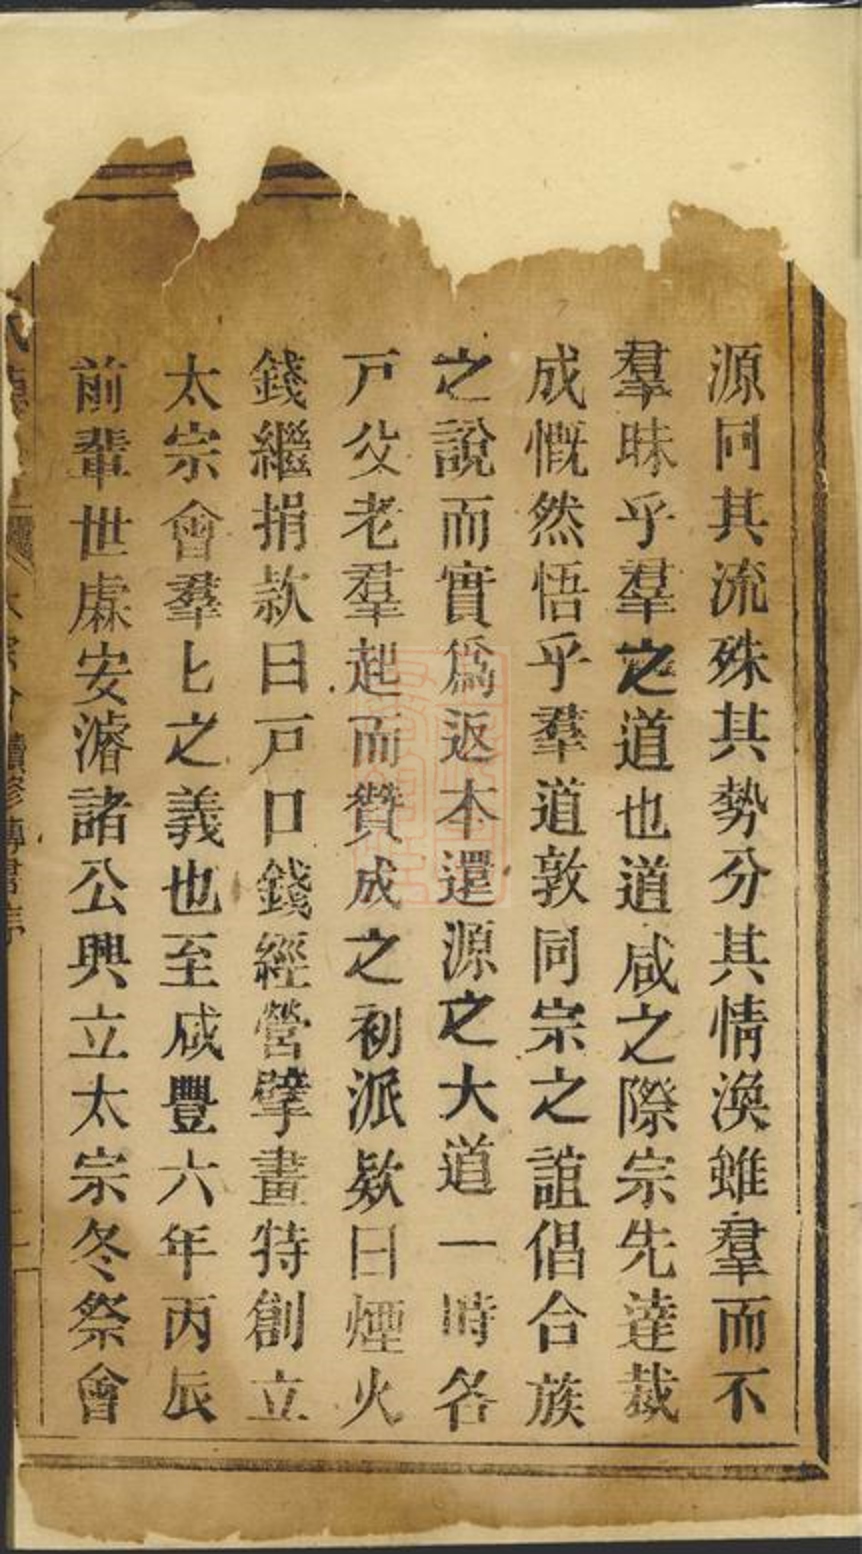 源同其流殊其勢分其情渙雖羣而不
羣昧乎羣之道也道咸之際宗先達裁
成慨然悟乎羣道敦同宗之誼倡合族
之說而實爲返本還源之大道一時各
戸父老羣起而贊成之初派欵曰煙火
錢繼捐款曰戸口錢經營擘畫特創立
太宗會羣匕之義也至咸豐六年丙辰
前輩世㡣安濬諸公興立太宗冬祭會
續修譜書序